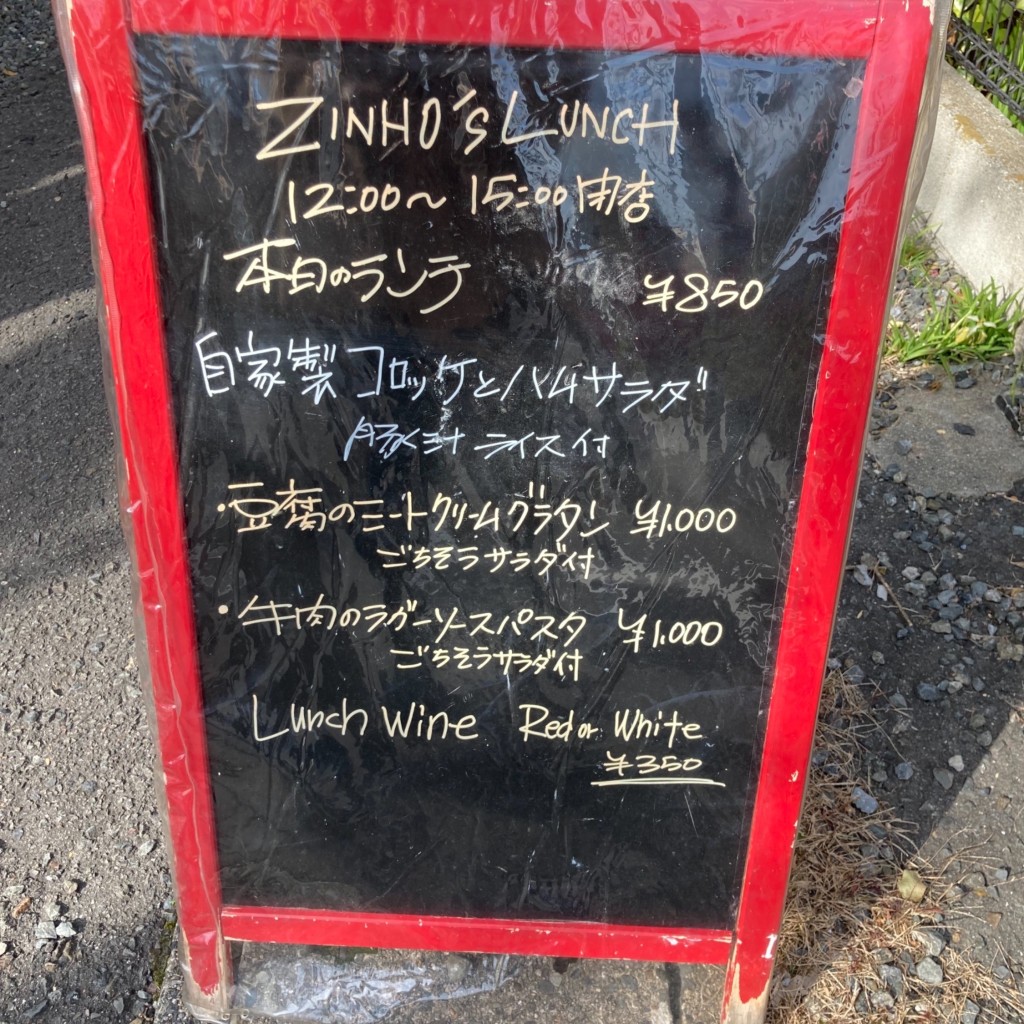 ZINHO'S LUNCH
12:00～15:00 閉店
本日のランチ ¥850
自家製コロッケとハムサラダ
豚汁 ライス付
・豆腐のミートクリームグラタン ¥1.000
ごちそうサラダ付
・牛肉のラグーソースパスタ ¥1.000
ごちそうサラダ付
Lunch Wine Red or White
¥350